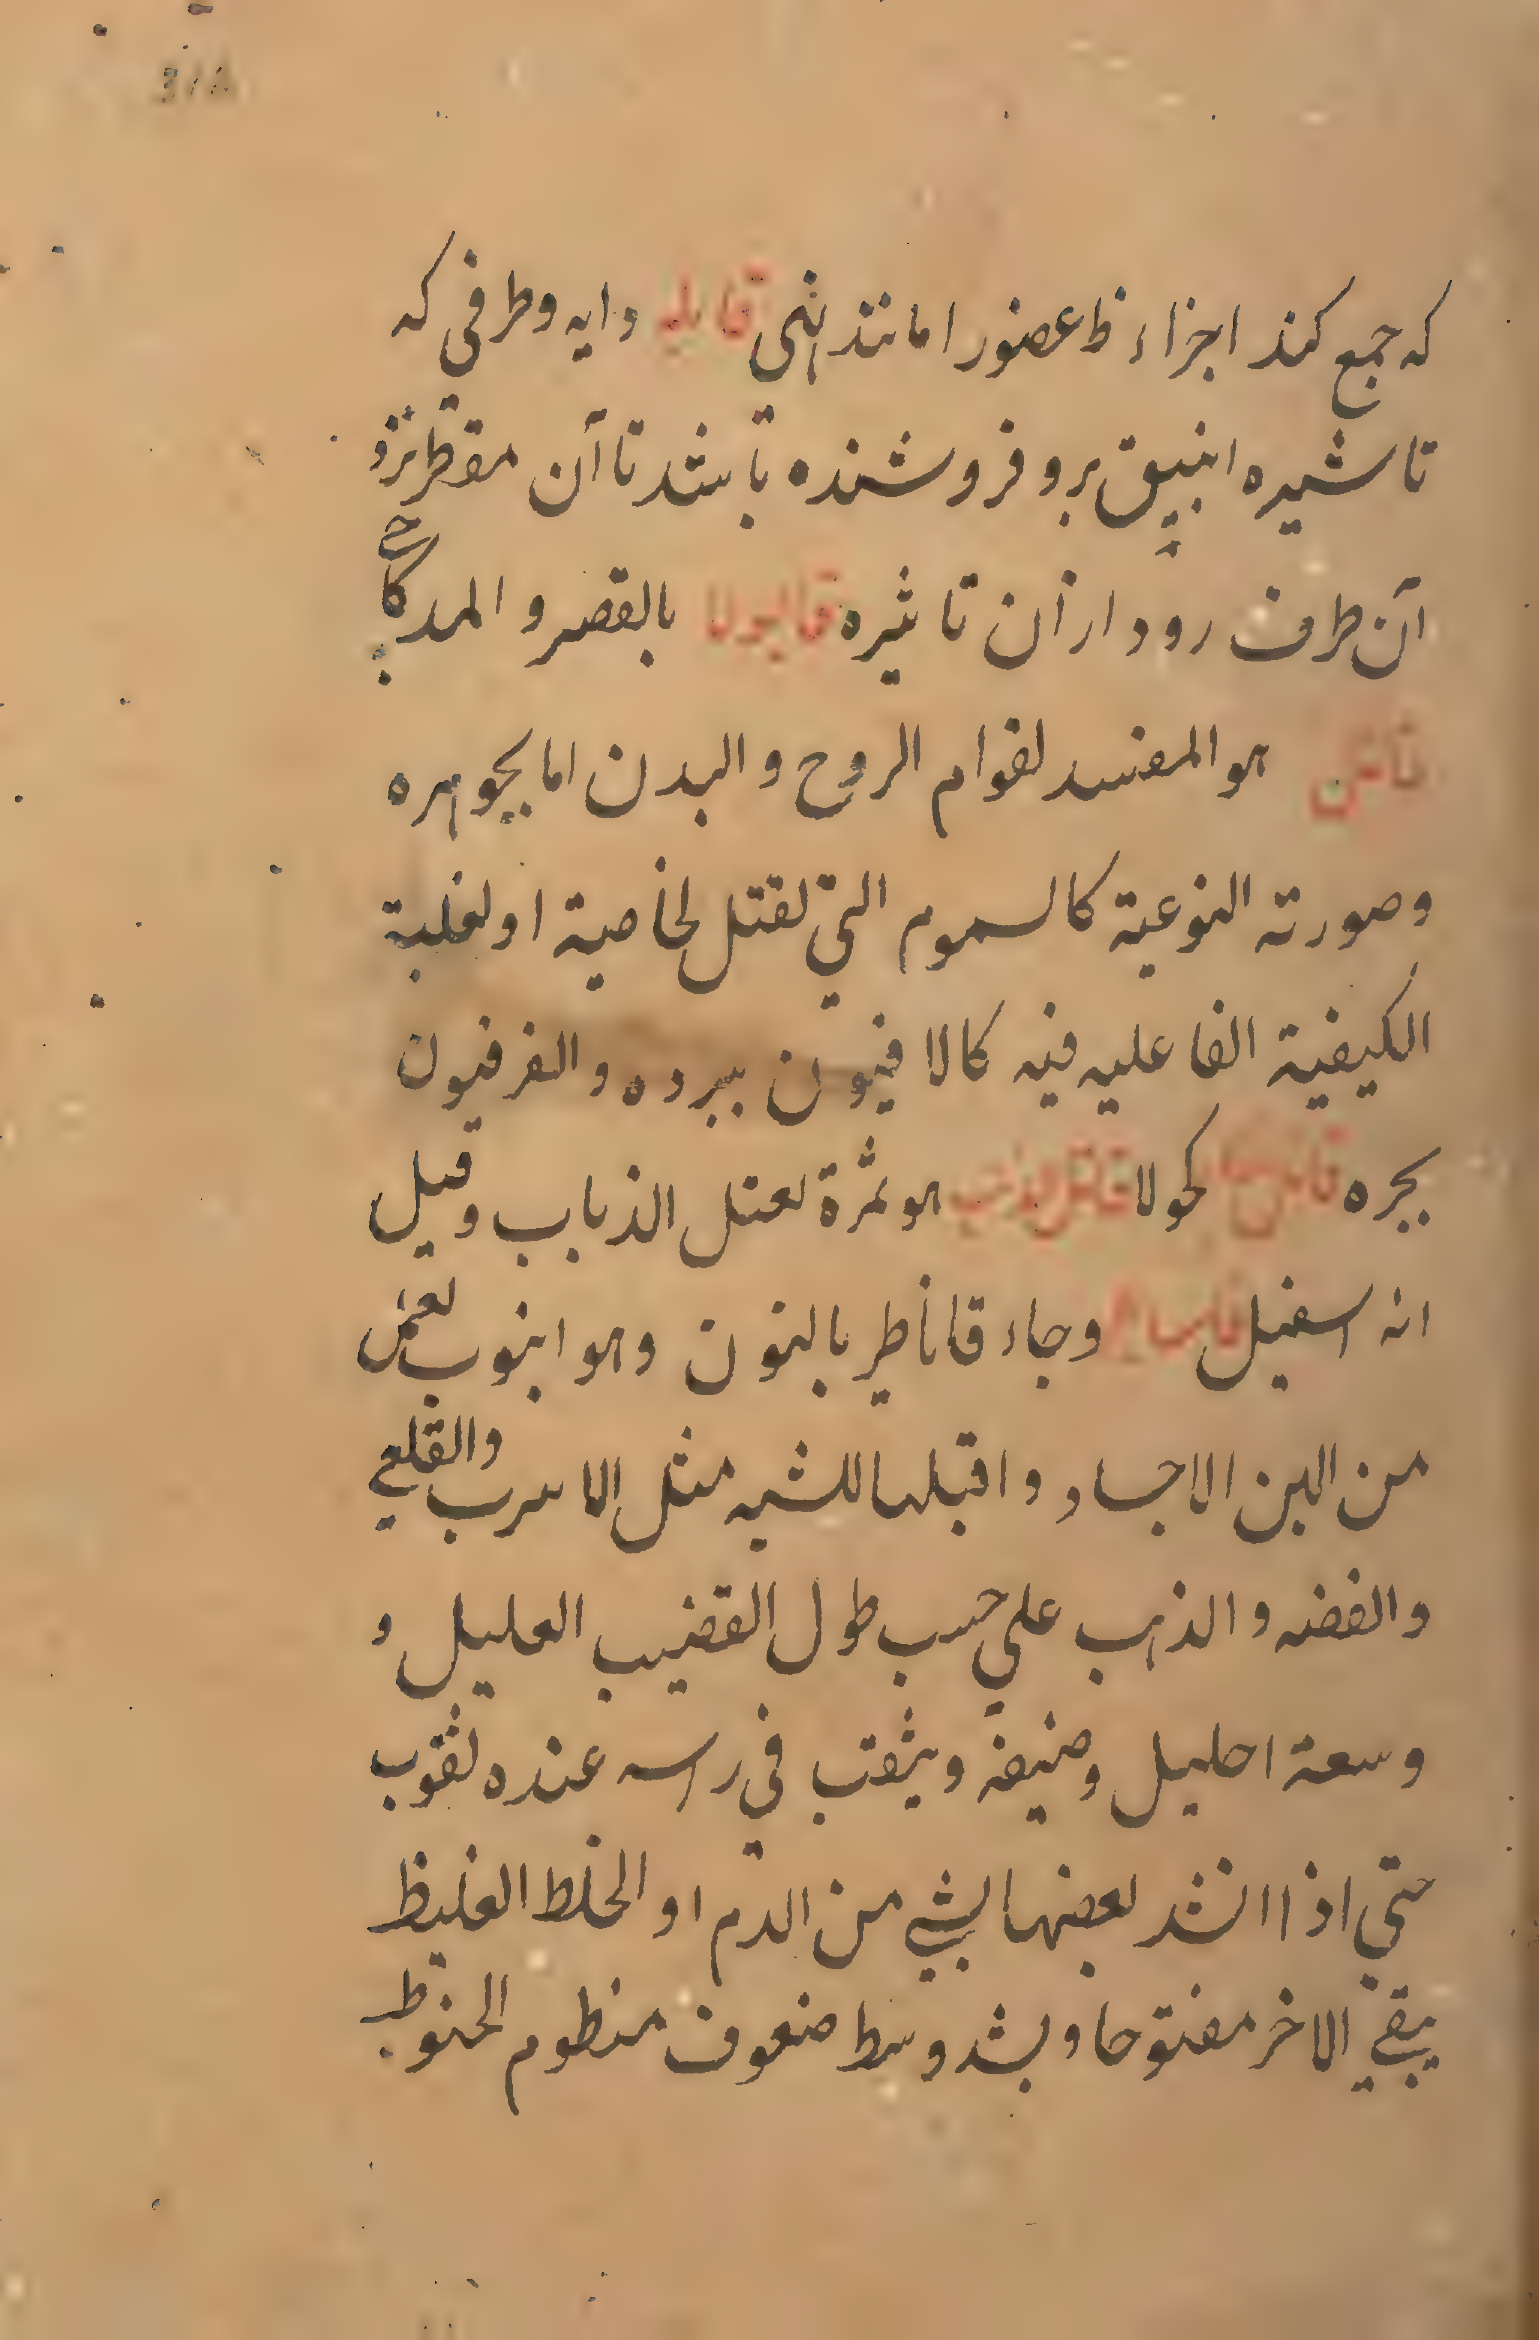 312
که جمع کند اجزاء ظاعضورا مانند انثی قابله دایه وطرفی که
تاشیره انبیق برو فروشنده باشد تا آن مقطرزو
آن طرف رود از آن تاثیره قابولا بالقصر والمد کا
قاتل هو المفسد لقوام الروح والبدن اما بجوهره
وصورته النوعیة کالسموم التی لقتل لخاصیة او لغلبة
الکیفیة الفاعلیه فیه کالافیون ببرده والفرفیون
بحره کحولا هو ثمرة لعتل الذباب وقیل
انه اسفیل وجاء قاناطیر بالنون وهو انبوب
من الین الاجساد واقبلها للشبه مثل الاسرب والقلعی
والفضه والذهب علی حسب طول القضیب العلیل و
وسعة احلیل وضیقه ویثقب فی راسه عنده ثقوب
حتی اذا انشد لعضها لشیی من الدم او الخلط الغلیظ
یبقی الاخر مفتوحا ویشد وسط صعوف منظوم الخنوط